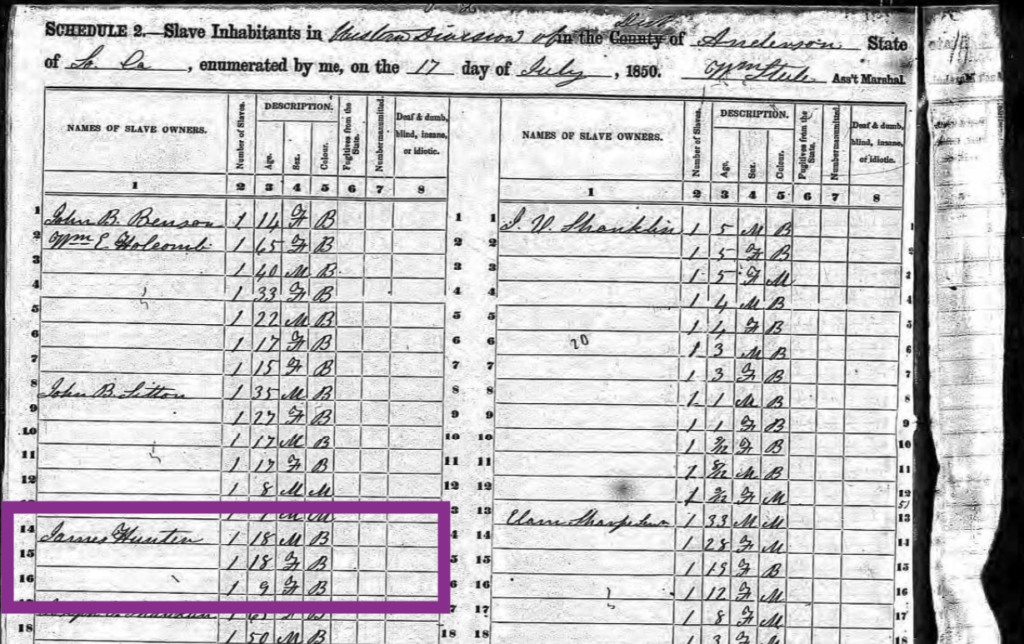 SCHEDULE 2.—Slave Inhabitants in Western Division of in the County of Anderson State
of So. Ca , enumerated by me, on the 17 day of July , 1850. Wm Steele Ass't Marshal.
NAMES OF SLAVE OWNERS. Number of Slaves. DESCRIPTION. Age. Sex. Colour. Fugitives from the State. Number manumitted. Deaf & dumb, blind, insane, or idiotic. NAMES OF SLAVE OWNERS. Number of Slaves. DESCRIPTION. Age. Sex. Colour. Fugitives from the State. Number manumitted. Deaf & dumb, blind, insane, or idiotic.
1 2 3 4 5 6 7 8 1 2 3 4 5 6 7 8
1 John B. Benson 1 14 F B 1 1 J. V. Shanklin 1 5 M B 1
2 Wm E. Holcomb 1 65 F B 2 2 1 5 F B 2
3 1 40 M B 3 3 1 5 F M 3
4 1 33 F B 4 4 1 4 M B 4
5 1 22 M B 5 5 1 4 F B 5
6 1 17 F B 6 6 20 1 3 M B 6
7 1 15 F B 7 7 1 3 F B 7
8 John B. Sitton 1 35 M B 8 8 1 1 M B 8
9 1 27 F B 9 9 1 1 F B 9
10 1 17 M B 10 10 1 F B 10
11 1 17 F B 11 11 1 M B 11
12 1 8 M M 12 12 1 F M 12
1 1 M M 13 Elam Sharpe 1 33 M M 13
14 James Hunter 1 18 M B 4 14 1 28 F M 14
15 1 18 F B 5 15 1 19 F B 15
16 1 9 F B 16 1 12 F M 16
17 1 8 F M 17
18 1 50 M B 18 18 1 3 F B 18